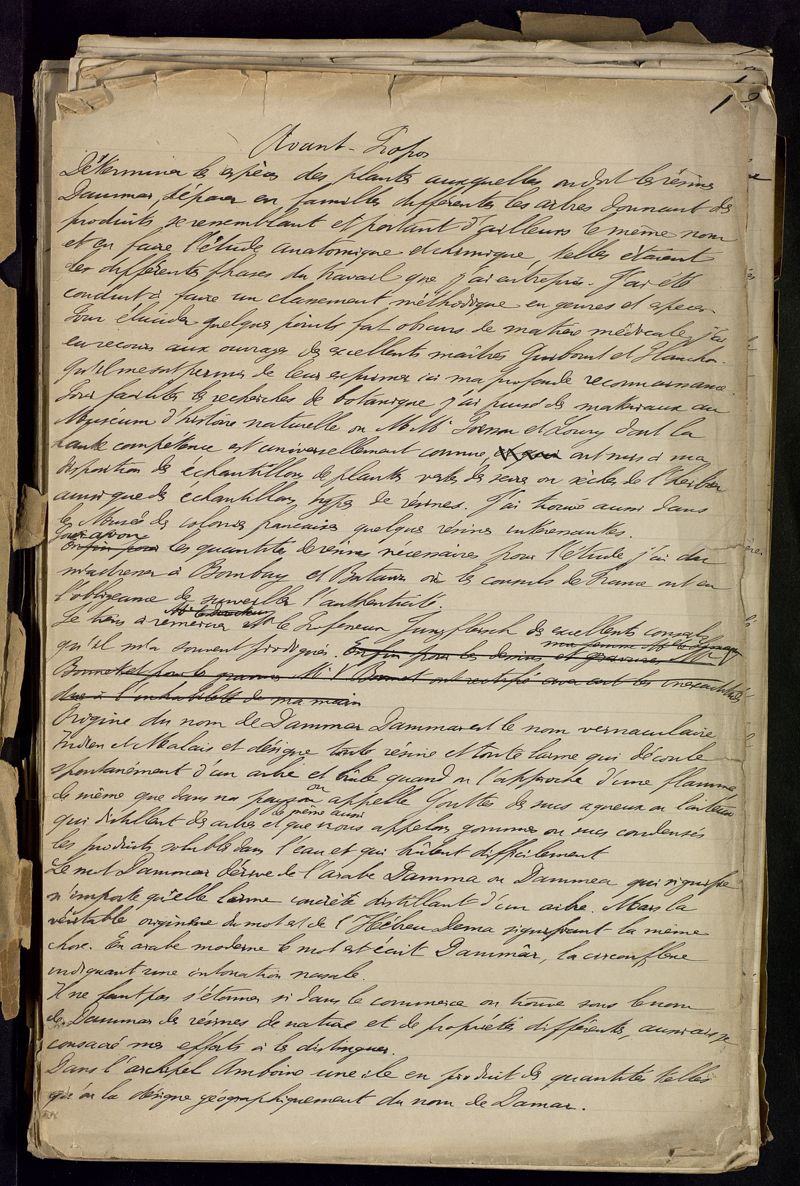 1
Avant-Propos
Déterminer les espèces des plantes auxquelles on doit les résines
Dammar, séparer en familles différentes les arbres donnant des
produits se ressemblant et portant d'ailleurs le même nom
et en faire l'étude anatomique et chimique, telles étaient
les différentes phases du travail que j'ai entrepris. J'ai été
conduit à faire un classement méthodique en genres et espèces
Pour élucider quelques points fort obscurs de matière médicale, j'ai
eu recours aux ouvrages des excellents maîtres Guibourt et Planchon.
Qu'il me soit permis de leur exprimer ici ma profonde reconnaissance.
Pour faciliter les recherches de botanique j'ai puisé des matériaux au
Muséum d'histoire naturelle où MM. Poisson et Loury dont la
haute compétence est universellement connue, ont mis à ma
disposition des échantillons de plantes vertes des serres ou sèches de l'Herbier
ainsi que des échantillons types de résines. J'ai trouvé aussi dans
les Musées des colonies françaises quelques résines intéressantes.
Pour avoir
Enfin pour les quantités de résines nécessaires pour l'étude j'ai du
m'adresser à Bombay et Batavia où les consuls de France ont eu
l'obligeance de surveiller l'authenticité.
Mr le Directeur
Je tiens à remercier Mr le Professeur Jungfleisch des excellents conseils
qu'il m'a souvent prodigués. Enfin pour les dessins et gravures
ma femme
Bonnet et pour les gravures Mr Bonnet ont rectifié avec art les inexactitudes
dues à l'inhabileté de ma main
Origine du nom de Dammar Dammar est le nom vernaculaire
Indien et Malais et désigne toute résine et toute larme qui découle
spontanément d'un arbre et brûle quand on l'approche d'une flamme
de même que dans nos pays on appelle Gouttes des sucs aqueux ou laiteux
ou
de même aussi
qui distillent des arbres et que nous appelons gommes ou sucs condensés
les produits solubles dans l'eau et qui brûlent difficilement
Le mot Dammar dérive de l'arabe Damma ou Dammea qui signifie
n'importe qu'elle larme concrète distillant d'un arbre. Mais la
véritable origine du mot est de l'Hébreu Dema signifiant la même
chose. En arabe moderne le mot est écrit Dammâr, la circonflexe
indiquant une intonation nasale.
Il ne faut pas s'étonner si dans le commerce on trouve sous le nom
de Dammar des résines de nature et de propriétés différentes, aussi ai-je
consacré mes efforts à les distinguer.
Dans l'archipel Amboine une île en produit des quantités telles
qu'on la désigne géographiquement du nom de Damar.